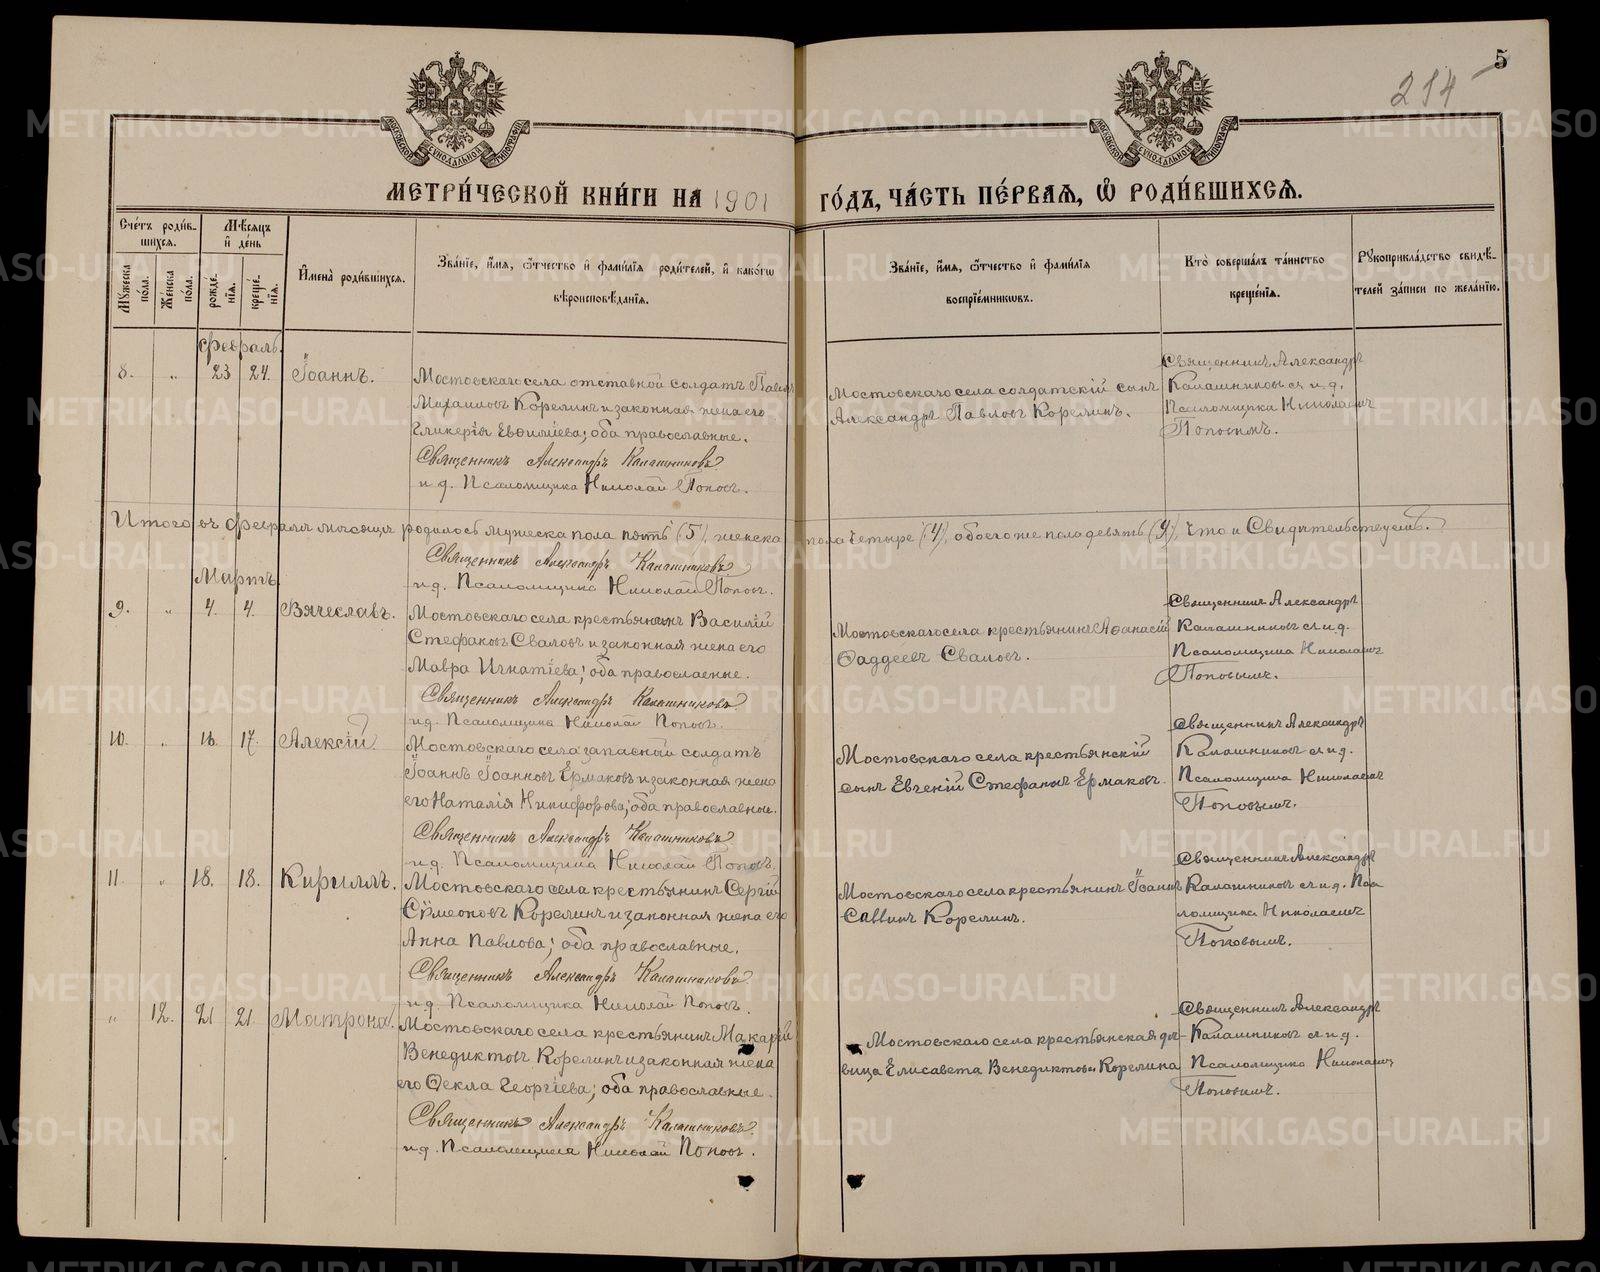 5
214
МОСКОВСКОЙ СУНОДАЛЬНОЙ ТИПОГРАФИИ
МОСКОВСКОЙ СУНОДАЛЬНОЙ ТИПОГРАФИИ
МЕТРИ́ЧЕСКОЙ КНИ́ГИ НА 1901 ГО́ДЪ, ЧА́СТЬ ПЕ́РВАЯ, Ѡ РОДИ́ВШИХСЯ.
Сче́тъ роди́в-
шихся.
Мѣ́сяцъ
и де́нь
Му́жеска
по́ла.
Же́нска
по́ла.
рожде́-
нія.
креще́-
нія.
Имена̀ роди́вшихся.
Зва́ніе, и́мя, ѻ́тчество и фами́лія роди́телей, и како́гѡ
вѣроисповѣ́данія.
Зва́ніе, и́мя, ѻ́тчество и фами́лія
воспріе́мниковъ.
Кто̀ соверша́лъ та́инство
креще́нія.
Рукоприкла́дство свидѣ́-
телей за́писи по жела́нію.
Февраль.
8. „ 23 24. Іоаннъ.
Мостовскаго села отставной солдатъ Павелъ
Михаиловъ Корелинъ и законная жена его
Гликерія Евѳиміева; оба православные.
Священникъ Александръ Калашниковъ
и.д. Псаломщика Николай Поповъ.
Мостовскаго села солдатскій сынъ
Александръ Павловъ Корелинъ.
Священникъ Александръ
Калашниковъ съ и.д.
Псаломщика Николаемъ
Поповымъ.
Итого въ Февралѣ мѣсяцѣ родилось мужеска пола пять (5), женска пола четыре (4), обоего же пола девять (9), что и свидѣтельствуемъ.
Священникъ Александръ Калашниковъ
и.д. Псаломщика Николай Поповъ.
Мартъ.
9. „ 4. 4. Вячеславъ.
Мостовскаго села крестьянинъ Василій
Стефановъ Сваловъ и законная жена его
Мавра Игнатіева; оба православные.
Священникъ Александръ Калашниковъ
и.д. Псаломщика Николай Поповъ.
Мостовскаго села крестьянинъ Аѳанасій
Ѳаддеевъ Сваловъ.
Священникъ Александръ
Калашниковъ съ и.д.
Псаломщика Николаемъ
Поповымъ.
10. „ 16. 17. Алексій
Мостовскаго села запасной солдатъ
Іоаннъ Іоанновъ Ермаковъ и законная жена
его Наталія Никифорова; оба православные.
Священникъ Александръ Калашниковъ
и.д. Псаломщика Николай Поповъ.
Мостовскаго села крестьянскій
сынъ Евгеній Стефановъ Ермаковъ.
Священникъ Александръ
Калашниковъ съ и.д.
Псаломщика Николаемъ
Поповымъ.
11. „ 18. 18. Кириллъ.
Мостовскаго села крестьянинъ Сергій
Сѵмеоновъ Корелинъ и законная жена его
Анна Павлова; оба православные.
Священникъ Александръ Калашниковъ
и.д. Псаломщика Николай Поповъ.
Мостовскаго села крестьянинъ Іоаннъ
Саввинъ Корелинъ.
Священникъ Александръ
Калашниковъ съ и.д. Пса
ломщика Николаемъ
Поповымъ.
„ 12. 21 21. Матрона.
Мостовскаго села крестьянинъ Макарій
Венедиктовъ Корелинъ и законная жена
его Ѳекла Георгіева; оба православные.
Священникъ Александръ Калашниковъ
и.д. Псаломщика Николай Поповъ.
Мостовскаго села крестьянская дѣ-
вица Елисавета Венедиктова Корелина
Священникъ Александръ
Калашниковъ съ и.д.
Псаломщика Николаемъ
Поповымъ.
METRIKI.GASO-URAL.RU